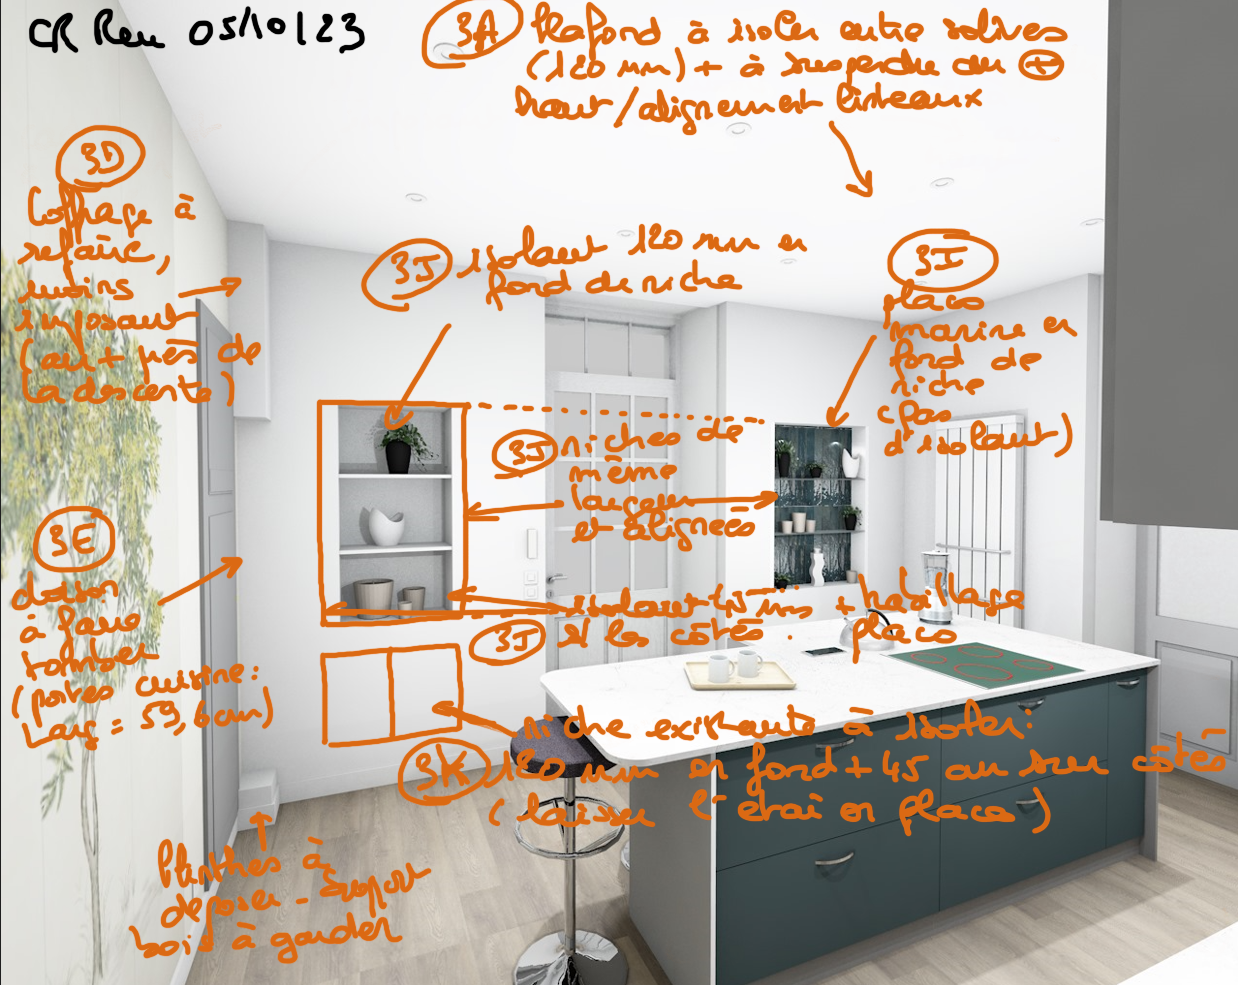 CR Reu 05/10/23
3A Plafond à isoler entre solives
(120 mm) + à suspendre au ⊕
haut/alignement linteaux
3D
Coffrage à
refaire,
moins
imposant
(au + près de
la descente)
3J isolant 120 mm en
fond de niche
3I
placo
marine en
fond de
niche
(pas
d'isolant)
3J niches de
même
largeur
et alignées
3J isolant 45 mm + habillage
si les côtés. placo
3E
cloison
à faire
tomber
(portes cuisine:
Larg = 59,6 cm)
niche existante à isoler:
3K 120 mm en fond + 45 au sur côtés
(laisser l'étai en place)
Plinthes à
déposer - support
bois à garder